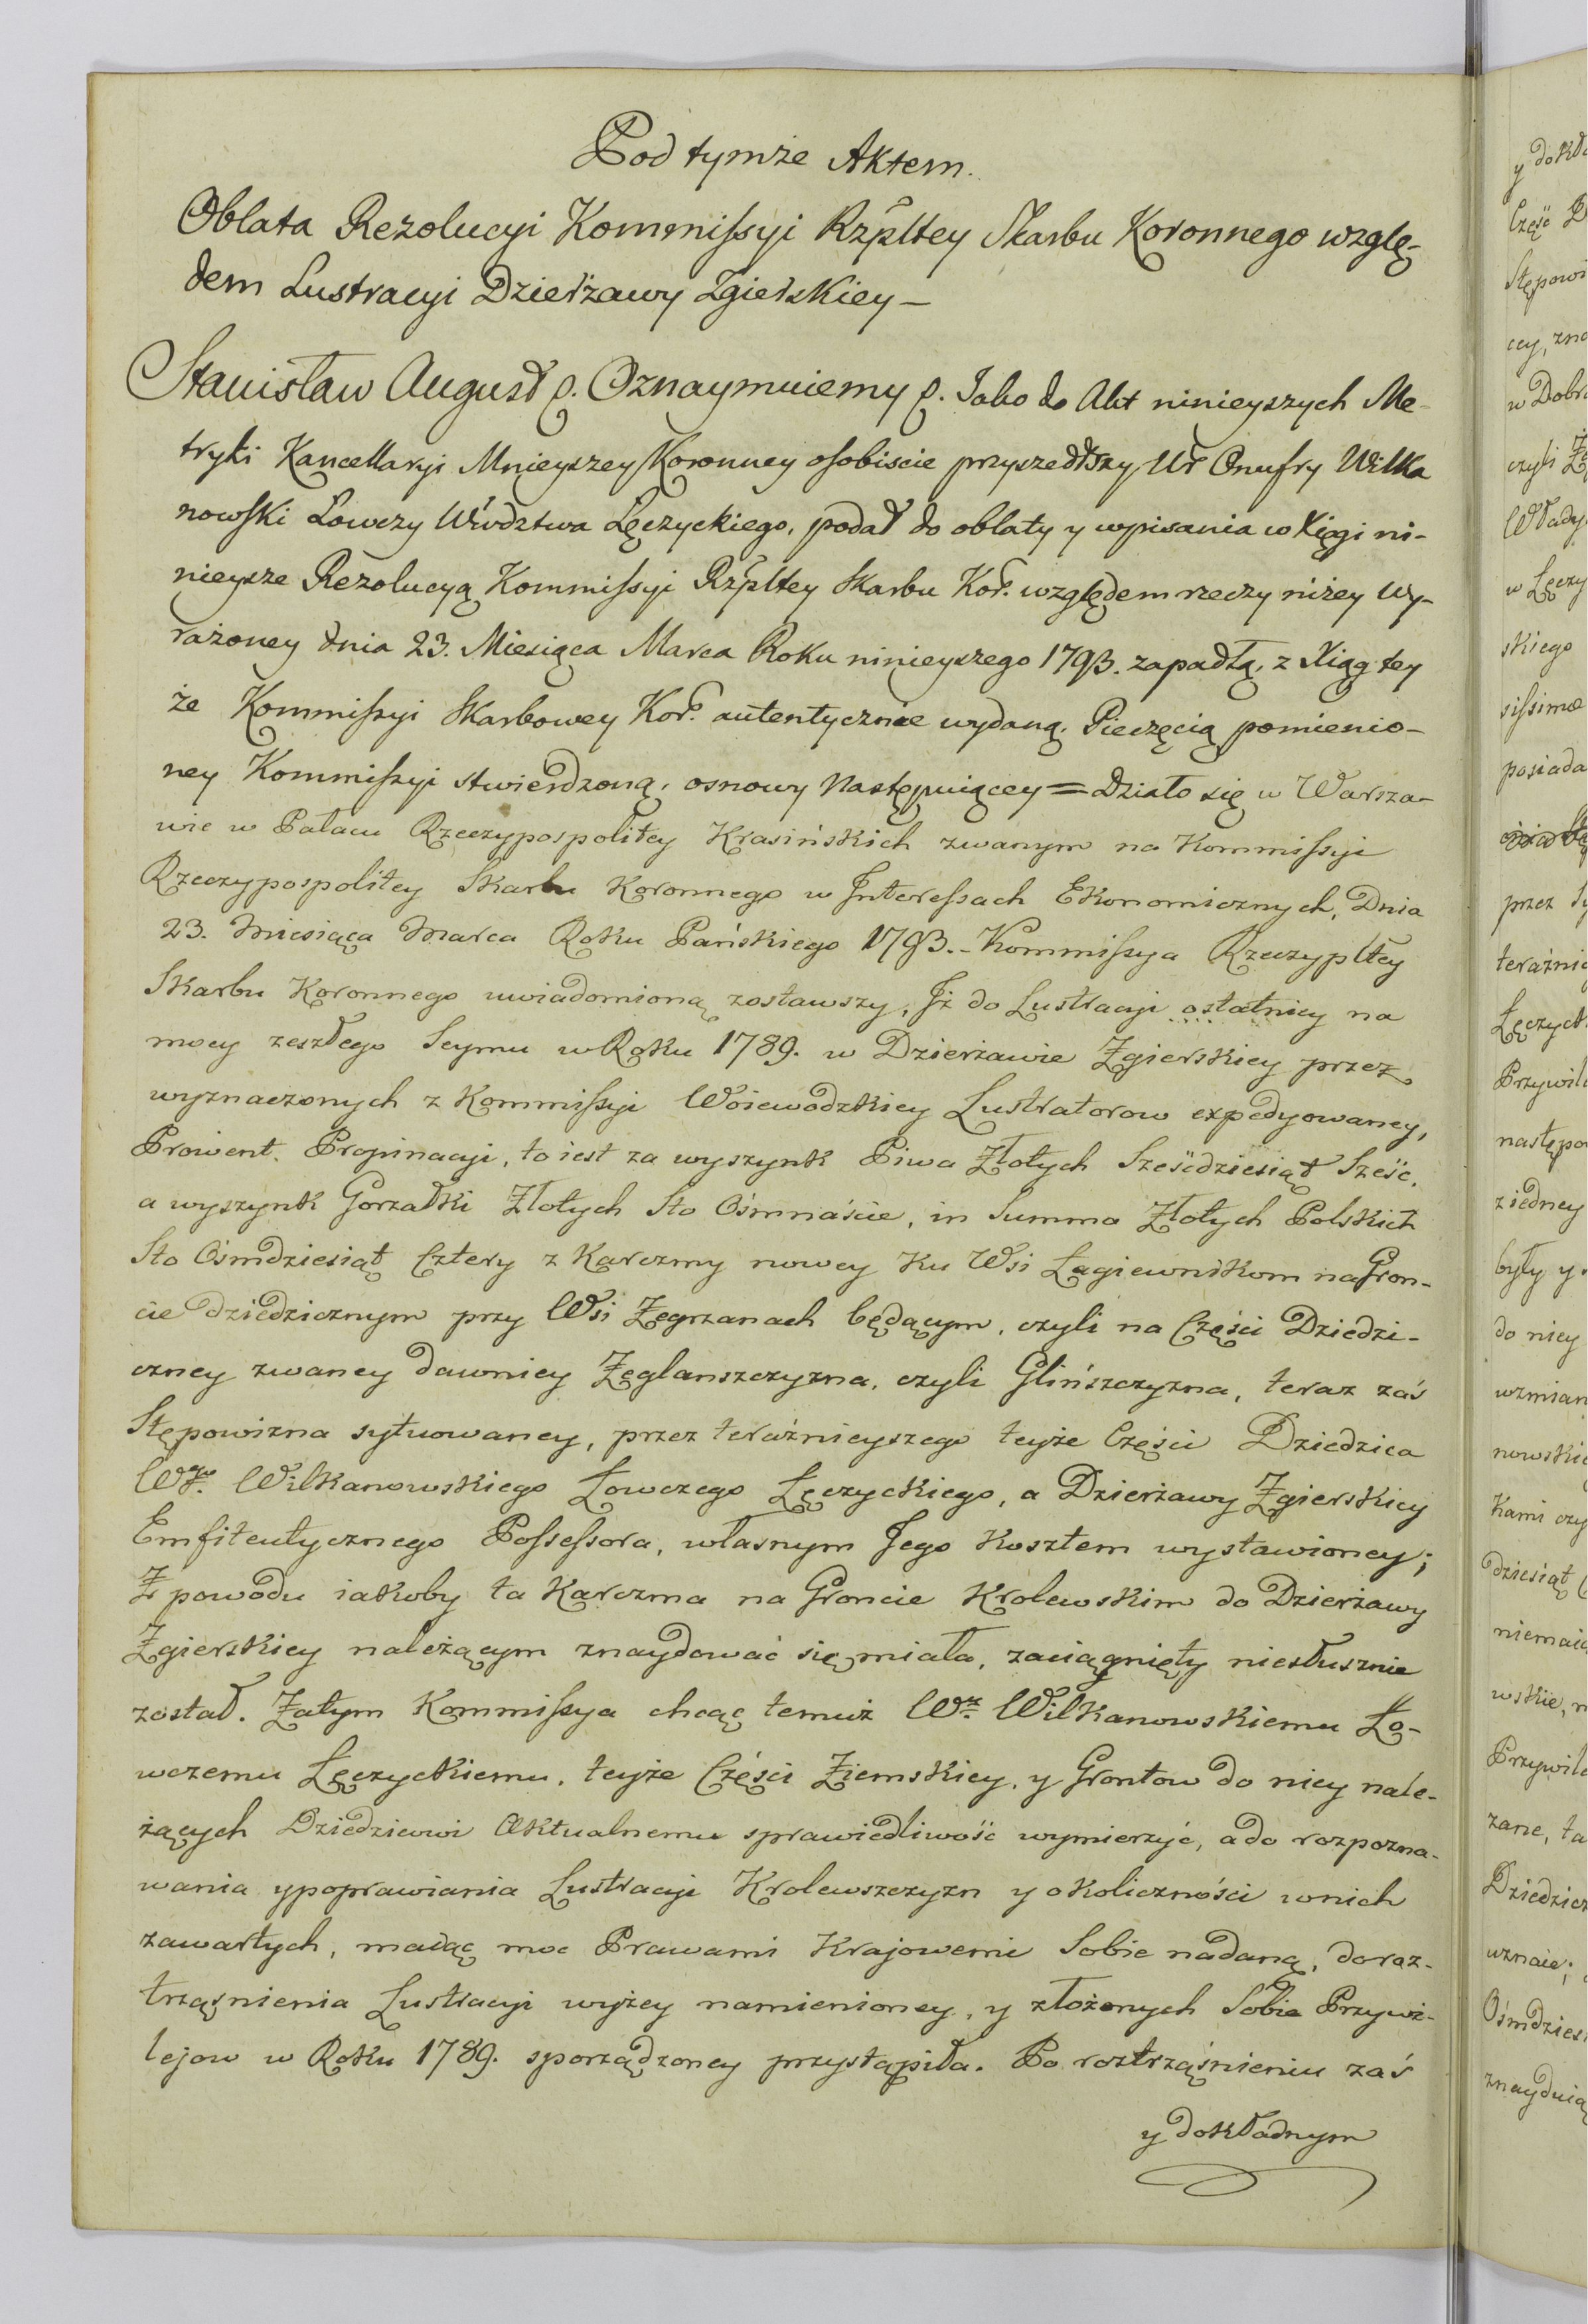 Pod tymże Aktem.
Oblata Rezolucyi Kommissyi Rzpltey Skarbu Koronnego wzglę-
dem Lustracyi Dzierżawy Zgierskiey –
Stanisław August &. Oznaymuiemy &. Jako do Akt ninieyszych Me-
tryki Kancellaryi Mnieyszey Koronney osobiscie przyszedłszy Ur Onufry Wilka
nowski Łowczy Wwdztwa Łęczyckiego, podał do oblaty y wpisania w Xięgi ni-
nieysze Rezolucyą Kommissyi Rzpltey Skarbu Kor. względem rzeczy niżey wy-
rażoney dnia 23. Miesiąca Marca Roku ninieyszego 1793. zapadłą, z Xiąg tey
że Kommissyi Skarbowey Kor. autentycznie wydaną, Pieczęcią pomienio-
ney Kommissyi stwierdzoną, osnowy następuiącey = Działo się w Warsza-
wie w Pałacu Rzeczypospolitey Krasińskich zwanym na Kommissyi
Rzeczypospolitey Skarbu Koronnego w Interessach Ekonomicznych, Dnia
23. Miesiąca Marca Roku Pańskiego 1793. - Kommissya Rzeczypltey
Skarbu Koronnego uwiadomioną zostawszy, Iż do Lustracyi ostatniey na
mocy zeszłego Seymu w Roku 1789. w Dzierżawie Zgierskiey przez
wyznaczonych z Kommissyi Woiewodzkiey Lustratorow expedyowaney,
Prowent Propinacyi, to iest za wyszynk Piwa Złotych Sześćdziesiąt Sześć,
a wyszynk Gorzałki Złotych Sto Ośmnaście, in Summa Złotych Polskich
Sto Ośmdziesiąt Cztery z Karczmy nowey ku Wsi Łagiewnikom na Gron-
cie dziedzicznym przy Wsi Zegrzanach będącym, czyli na Części Dziedzi-
czney zwaney dawniey Zęglanszczyzna, czyli Glińszczyzna, teraz zaś
Stępowizna sytuowaney, przez teraźnieyszego teyże Części Dziedzica
Wgo. Wilkanowskiego Łowczego Łęczyckiego, a Dzierżawy Zgierskiey
Emfiteutycznego Possessora, własnym Jego Kosztem wystawioney;
Z powodu iakoby ta Karczma na Groncie Krolewskim do Dzierżawy
Zgierskiey należącym znaydować się miała, zaciągnięty niesłusznie
został. Zatym Kommissya chcąc temuż Wz. Wilkanowskiemu Ło-
wczemu Łęczyckiemu, teyże Części Ziemskiey, y Grontow do niey nale-
żących Dziedzicowi Aktualnemu sprawiedliwość wymierzyć, a do rozpozna-
wania y poprawiania Lustracyi Krolewszczyzn y okoliczności w nich
zawartych, maiąc moc Prawami Krajowemi Sobie nadaną, do roz-
trząśnienia Lustracyi wyżey namienioney, y złożonych Sobie Przywi-
lejow w Roku 1789. sporządzoney przystąpiła. Po roztrząśnieniu zaś
y dokładnym